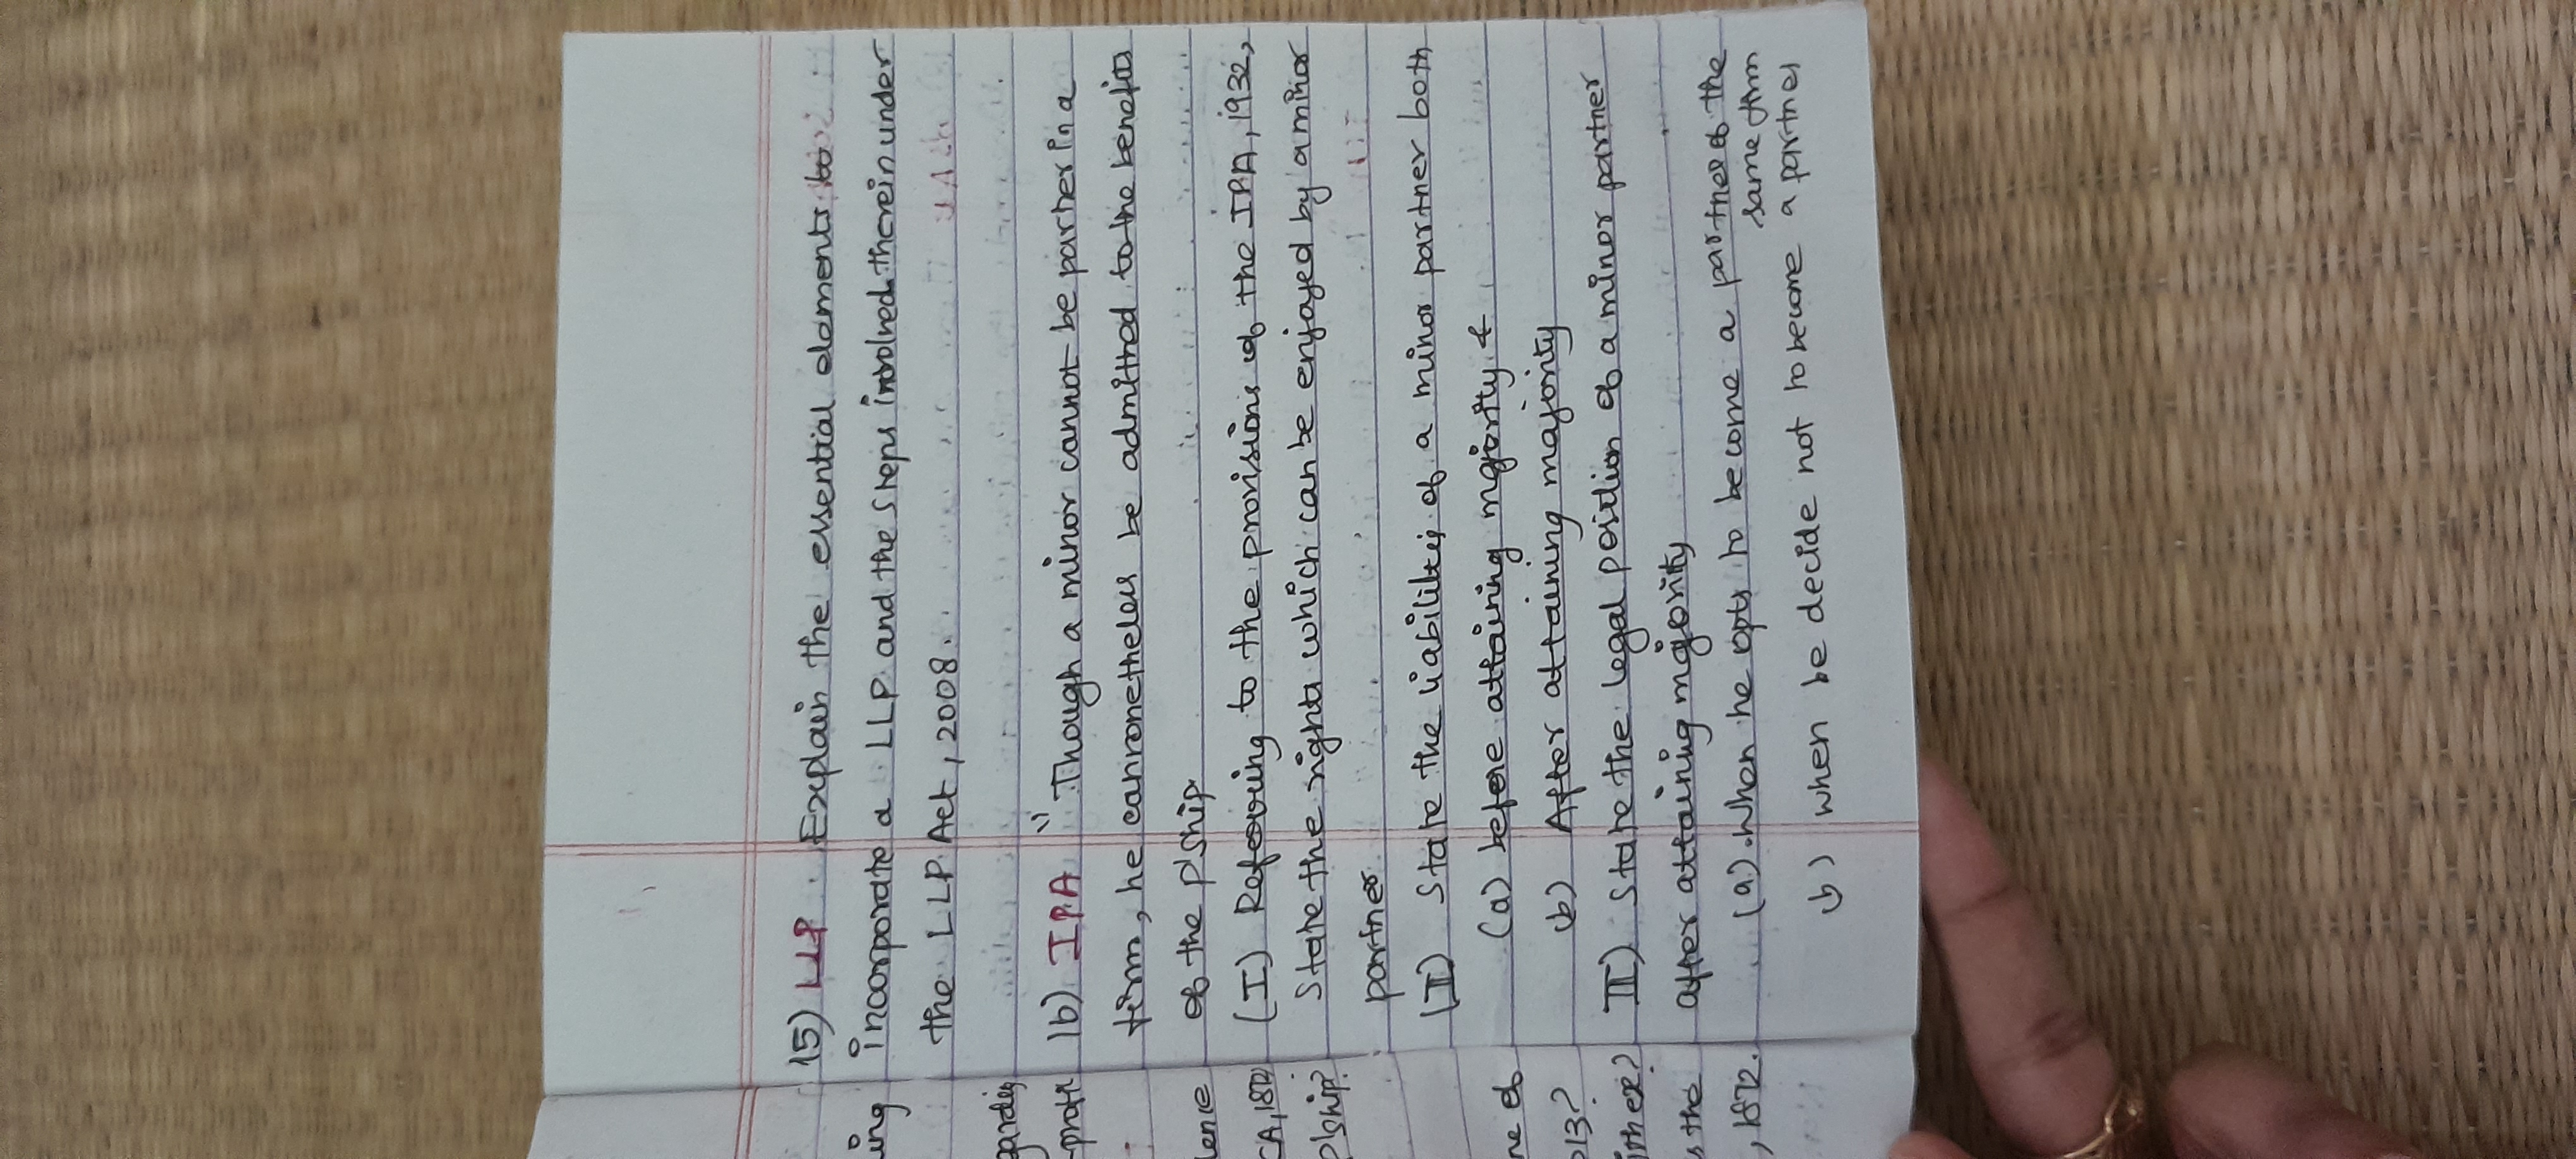 15) LLP Explain the essential elements to
incorporate a LLP and the steps involved therein under
the LLP Act, 2008.
16) IPA i) Though a minor cannot be parter in a
firm, he cannonetheless be admitted to the benefits
of the P'ship
(I) Referring to the provisions of the IPA, 1932,
State the rights which can be enjoyed by a minor
partner
(II) State the liability of a minor partner both
(a) before attaining majority &
b) After attaining majority
III) State the legal position of a minor partner
after attaining majority
(a) When he opts to become a partner of the
same firm
b) when be decide not to become a partner
ing
garding
lene
CA, 1872
p'ship?
ne of
2013?
ither?
s the
, 1872.